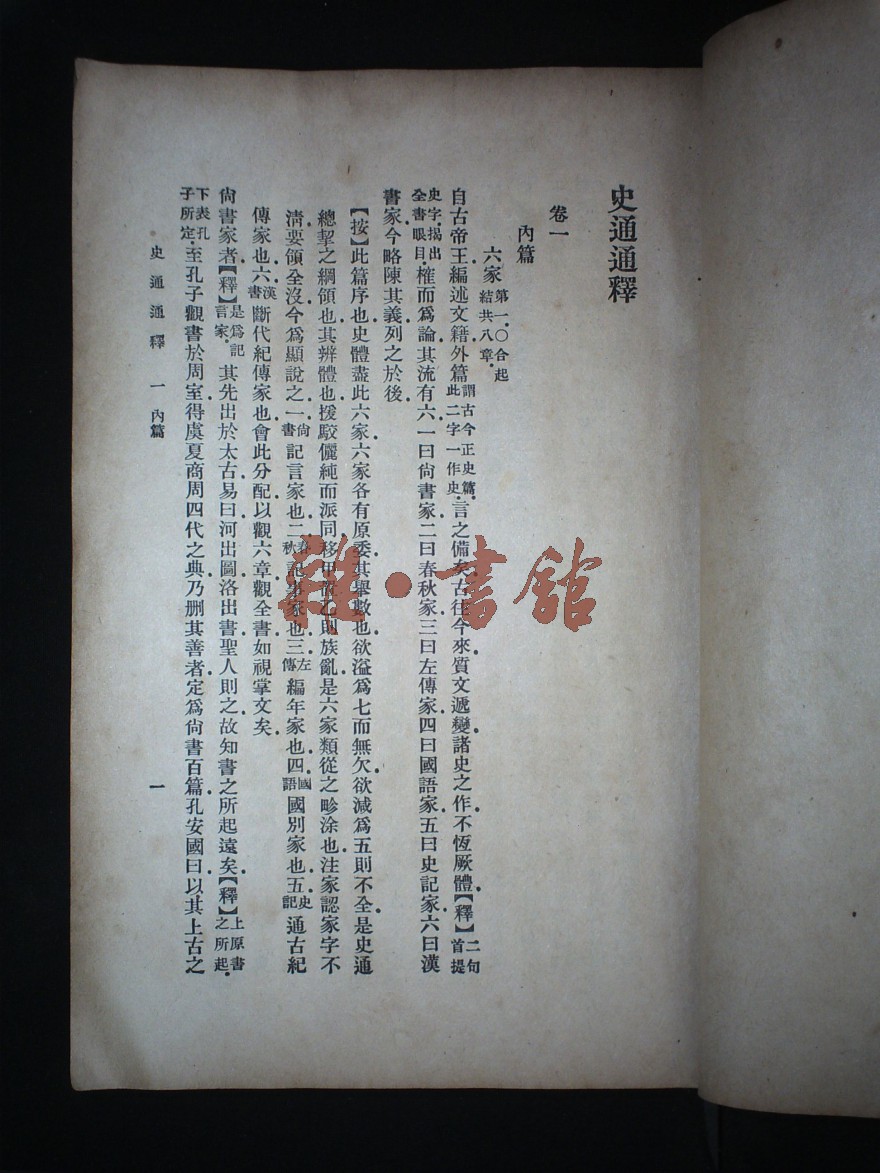 史通通釋
卷一
內篇
六家第一。〇合起結共八章。
自古帝王編述文籍外篇謂古今正史篇。此二字一作史。言之備矣古往今來質文遞變諸史之作不恆厥體【釋】二句首提
史字。揭出全書眼目。榷而爲論其流有六一曰尙書家二曰春秋家三曰左傳家四曰國語家五曰史記家六曰漢
書家今略陳其義列之於後
【按】此篇序也史體盡此六家六家各有原委其舉數也欲溢爲七而無欠欲減爲五則不全是史通
總挈之綱領也其辨體也援駁儷純而派同移甲敎乙則族亂是六家類從之畛涂也注家認家字不
淸要領全沒今爲顯說之一尙書記言家也二春秋記事家也三左傳編年家也四國語國別家也五史記通古紀
傳家也六漢書斷代紀傳家也會此分配以觀六章觀全書如視掌文矣
尙書家者【釋】是爲記言家。其先出於太古易曰河出圖洛出書聖人則之故知書之所起遠矣【釋】上原書之所起。
下表孔子所定。至孔子觀書於周室得虞夏商周四代之典乃刪其善者定爲尙書百篇孔安國曰以其上古之
史通通釋 一 內篇
一
雜·書館